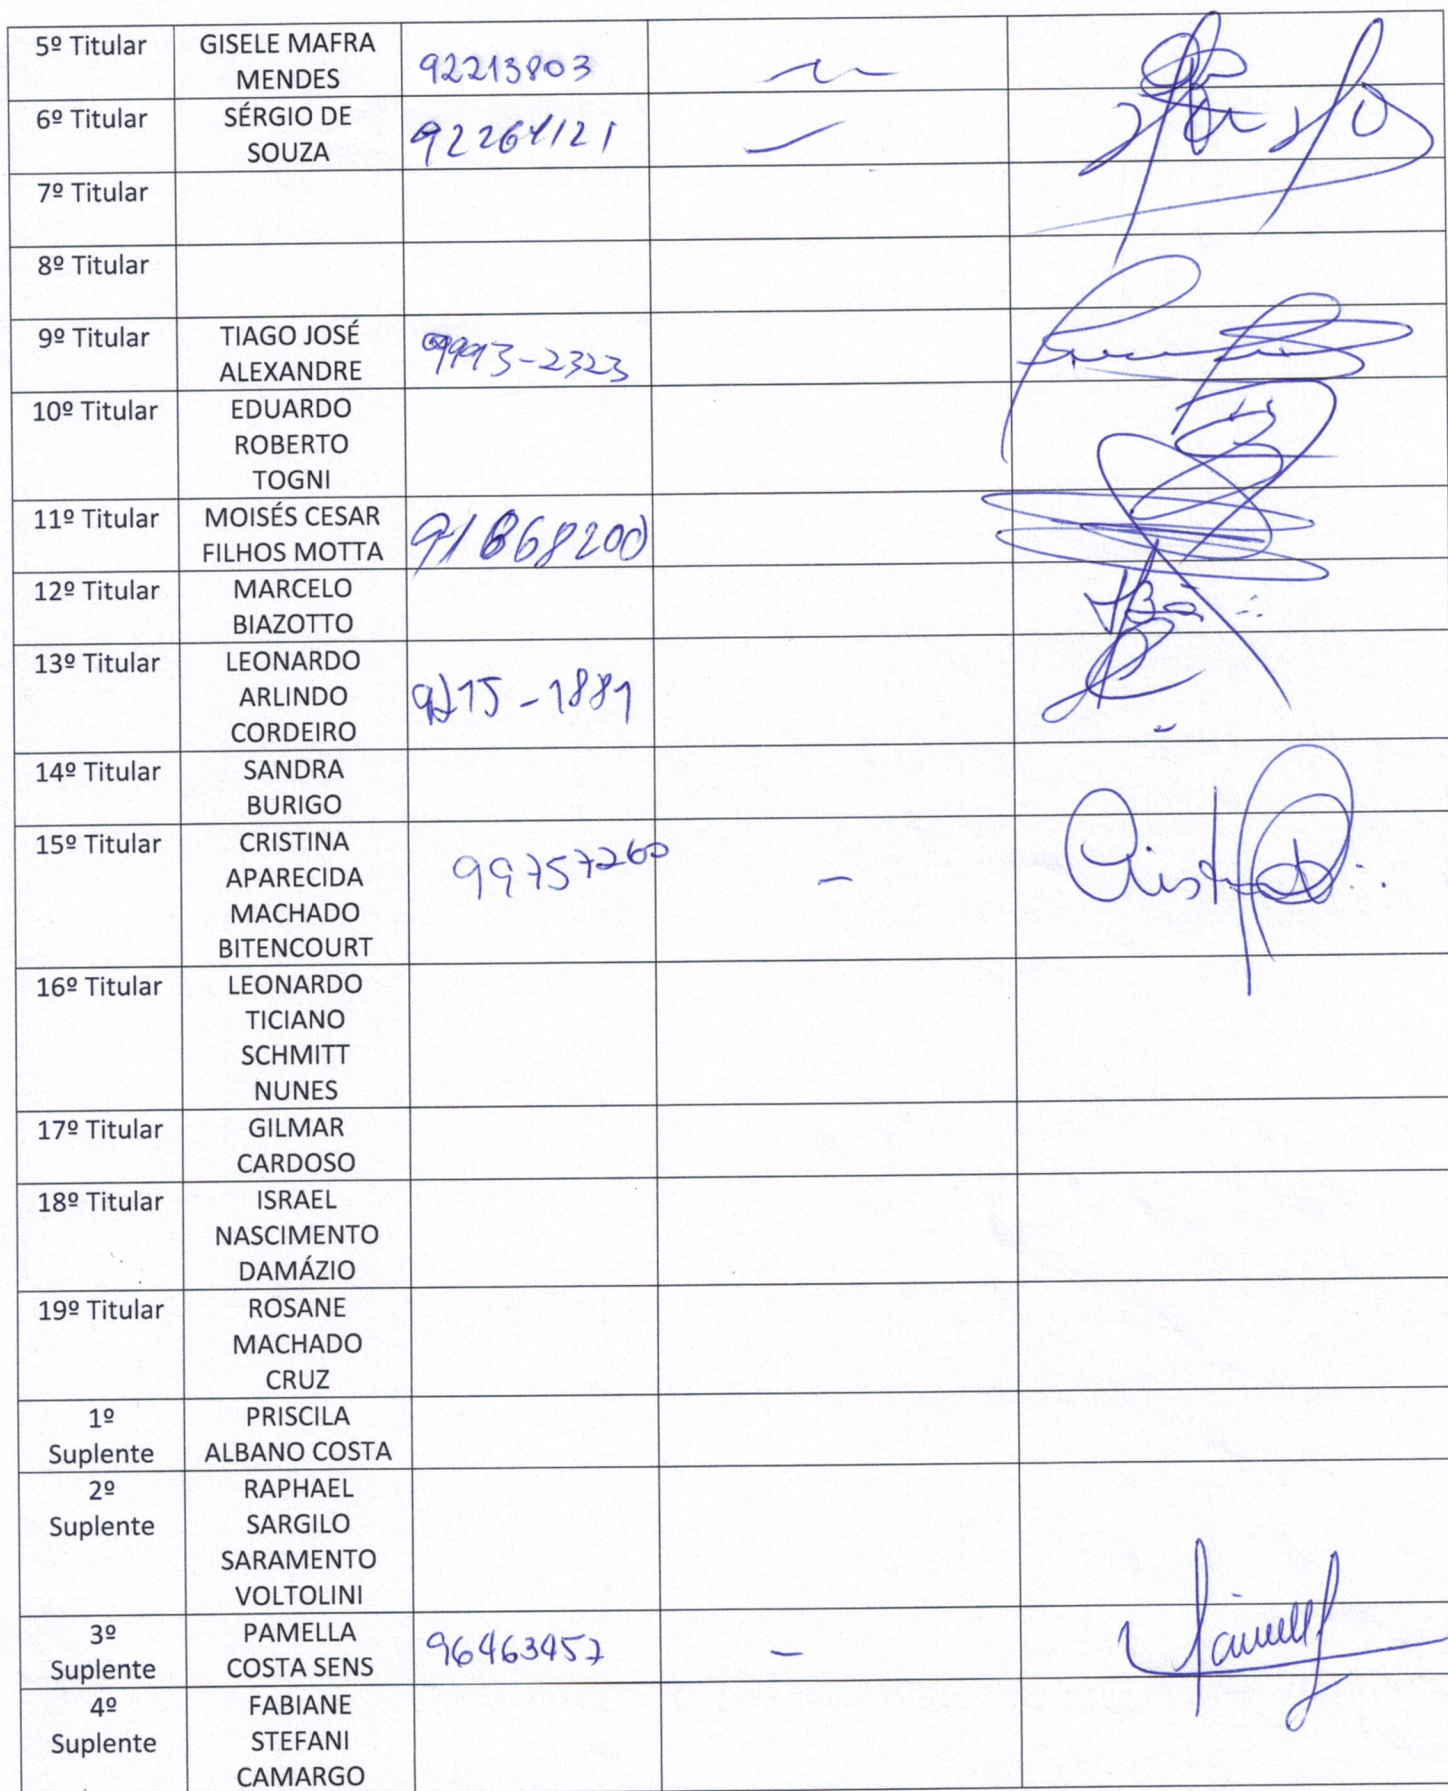 5º Titular GISELE MAFRA
MENDES 92213803
6º Titular SÉRGIO DE
SOUZA 92261121
7º Titular
8º Titular
9º Titular TIAGO JOSÉ
ALEXANDRE 9993-2323
10º Titular EDUARDO
ROBERTO
TOGNI
11º Titular MOISÉS CESAR
FILHOS MOTTA 91868200
12º Titular MARCELO
BIAZOTTO
13º Titular LEONARDO
ARLINDO
CORDEIRO
14º Titular SANDRA
BURIGO
15º Titular CRISTINA
APARECIDA 99757260
MACHADO
BITENCOURT
16º Titular LEONARDO
TICIANO
SCHMITT
NUNES
17º Titular GILMAR
CARDOSO
18º Titular ISRAEL
NASCIMENTO
DAMÁZIO
19º Titular ROSANE
MACHADO
CRUZ
1º PRISCILA
Suplente ALBANO COSTA
2º RAPHAEL
Suplente SARGILO
SARAMENTO
VOLTOLINI
3º PAMELLA 96463457
Suplente COSTA SENS
4º FABIANE
Suplente STEFANI
CAMARGO